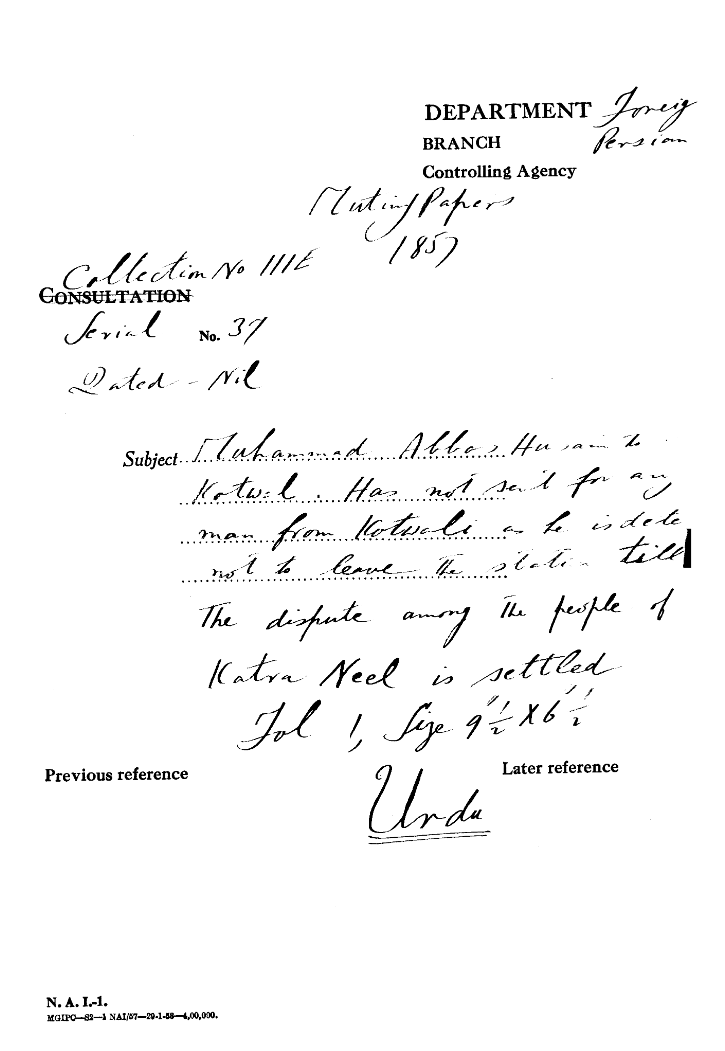 DEPARTMENT Foreig
BRANCH Persian
Controlling Agency
Mutiny Papers
1857
Collection No IIIE
CONSULTATION
Serial No. 37
Dated - Nil
Subject Muhammad Abbas Husain to
Kotwal. Has not sent for any
man from Kotwali as he is dete
not to leave the statio till
The dispute among the people of
Katra Neel is settled
Fol 1, Size 9"½ X 6"½
Previous reference
Later reference
Urdu
N. A. I.-1.
MGIPC—S2—1 NAI/57—29-1-58—4,00,000.